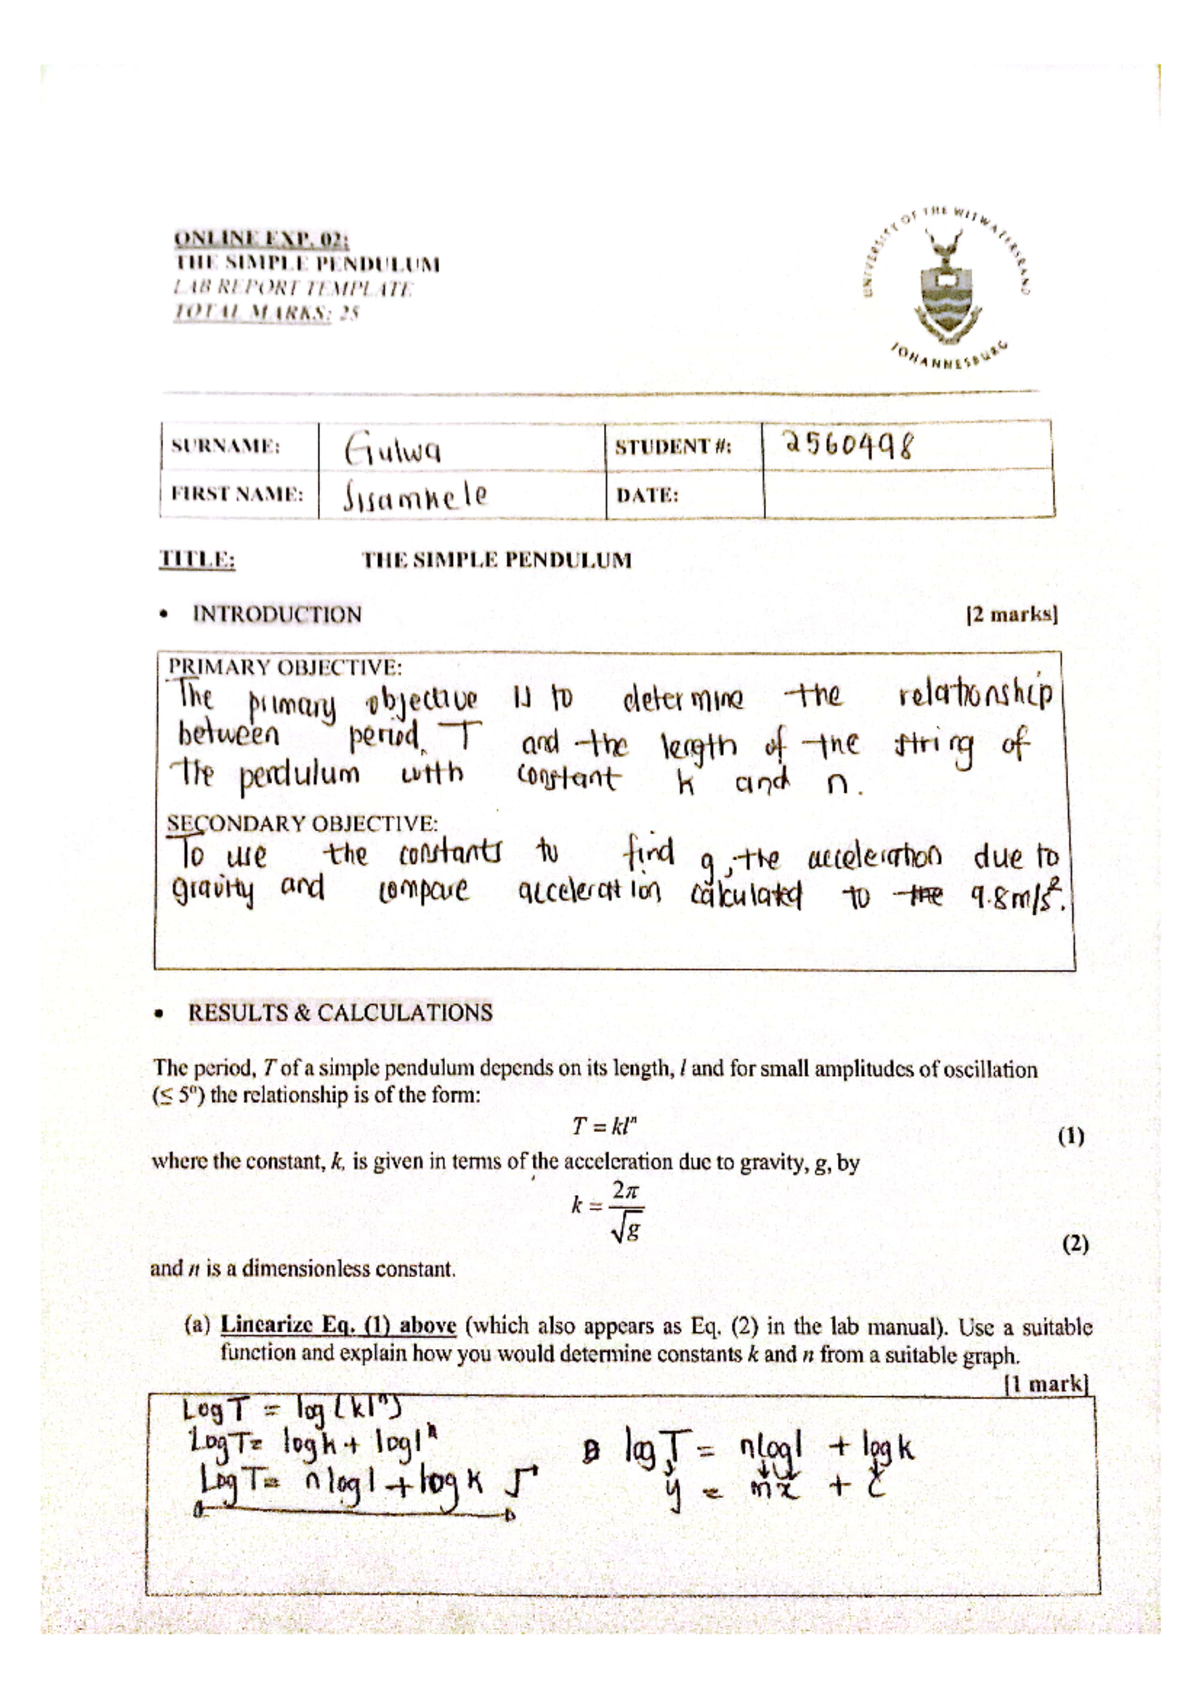 ONLINE EXP. 02:
THE SIMPLE PENDULUM
LAB REPORT TEMPLATE
TOTAL MARKS: 25
UNIVERSITY OF THE WITWATERSRAND
JOHANNESBURG
SURNAME: Gulwa STUDENT #: 2560498
FIRST NAME: Sisamkele DATE:
TITLE: THE SIMPLE PENDULUM
• INTRODUCTION [2 marks]
PRIMARY OBJECTIVE:
The primary objective is to determine the relationship
between period, T and the length of the string of
the pendulum with constant k and n.
SECONDARY OBJECTIVE:
To use the constants to find g, the acceleration due to
gravity and compare acceleration calculated to the 9.8m/s².
• RESULTS & CALCULATIONS
The period, T of a simple pendulum depends on its length, l and for small amplitudes of oscillation
(≤ 5º) the relationship is of the form:
T = klⁿ (1)
where the constant, k, is given in terms of the acceleration due to gravity, g, by
k = 2π/√g (2)
and n is a dimensionless constant.
(a) Linearize Eq. (1) above (which also appears as Eq. (2) in the lab manual). Use a suitable
function and explain how you would determine constants k and n from a suitable graph.
[1 mark]
Log T = log (klⁿ)
Log T = log k + log lⁿ
Log T = n log l + log k
log T = n log l + log k
y = mx + c